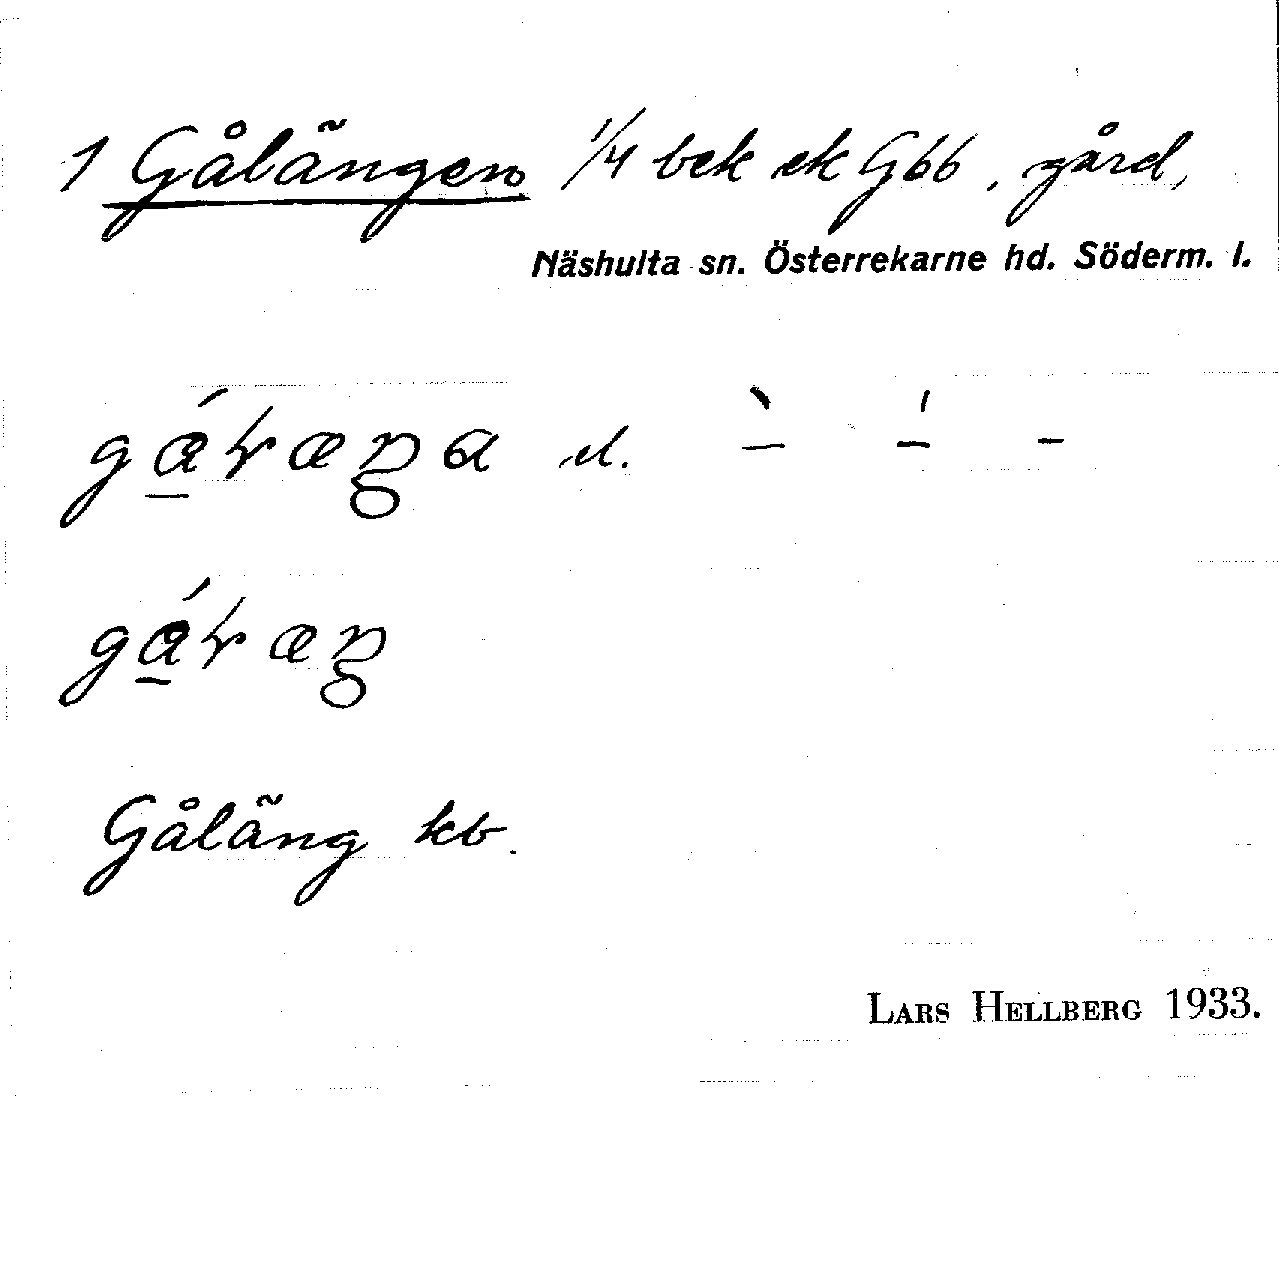 1 Gålängen 1/4 bek ek G66, gård,
Näshulta sn. Österrekarne hd. Söderm. l.
Gåläng kb.
LARS HELLBERG 1933.